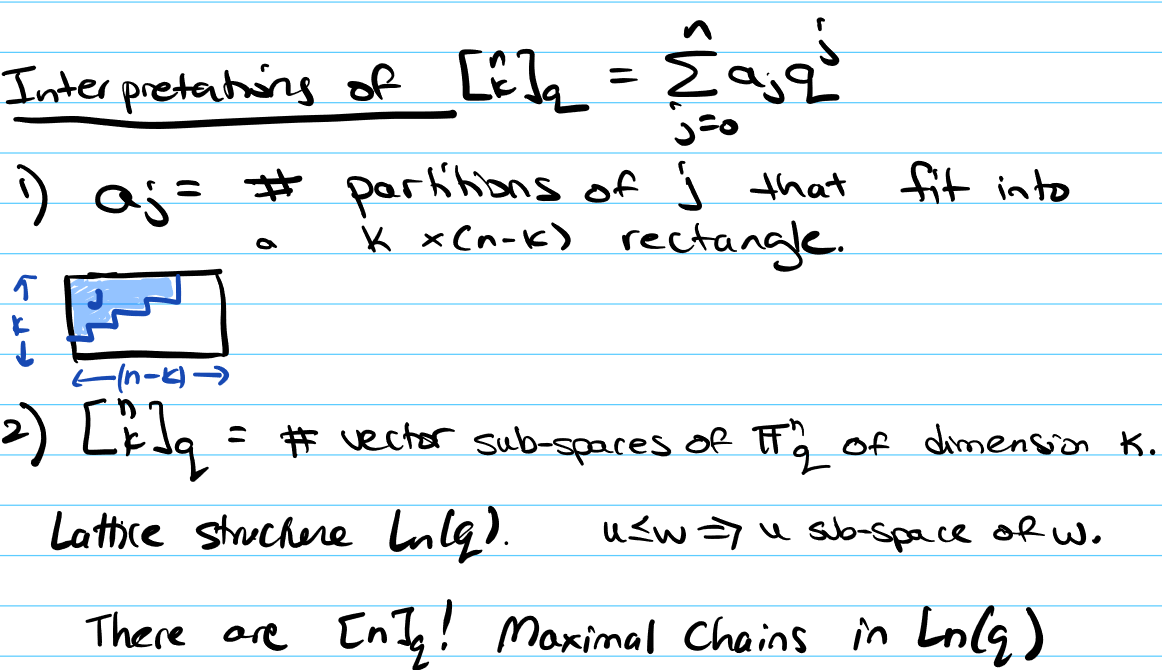 Interpretations of [n k]_q = Σ_{j=0}^{n} a_j q^j
1) a_j = # partitions of j that fit into
a k ×(n-k) rectangle.
j
k
(n-k)
2) [n k]_q = # vector sub-spaces of 𝔽_q^n of dimension k.
Lattice structure Ln(q). u≤w ⇒ u sub-space of w.
There are [n]_q! Maximal Chains in Ln(q)